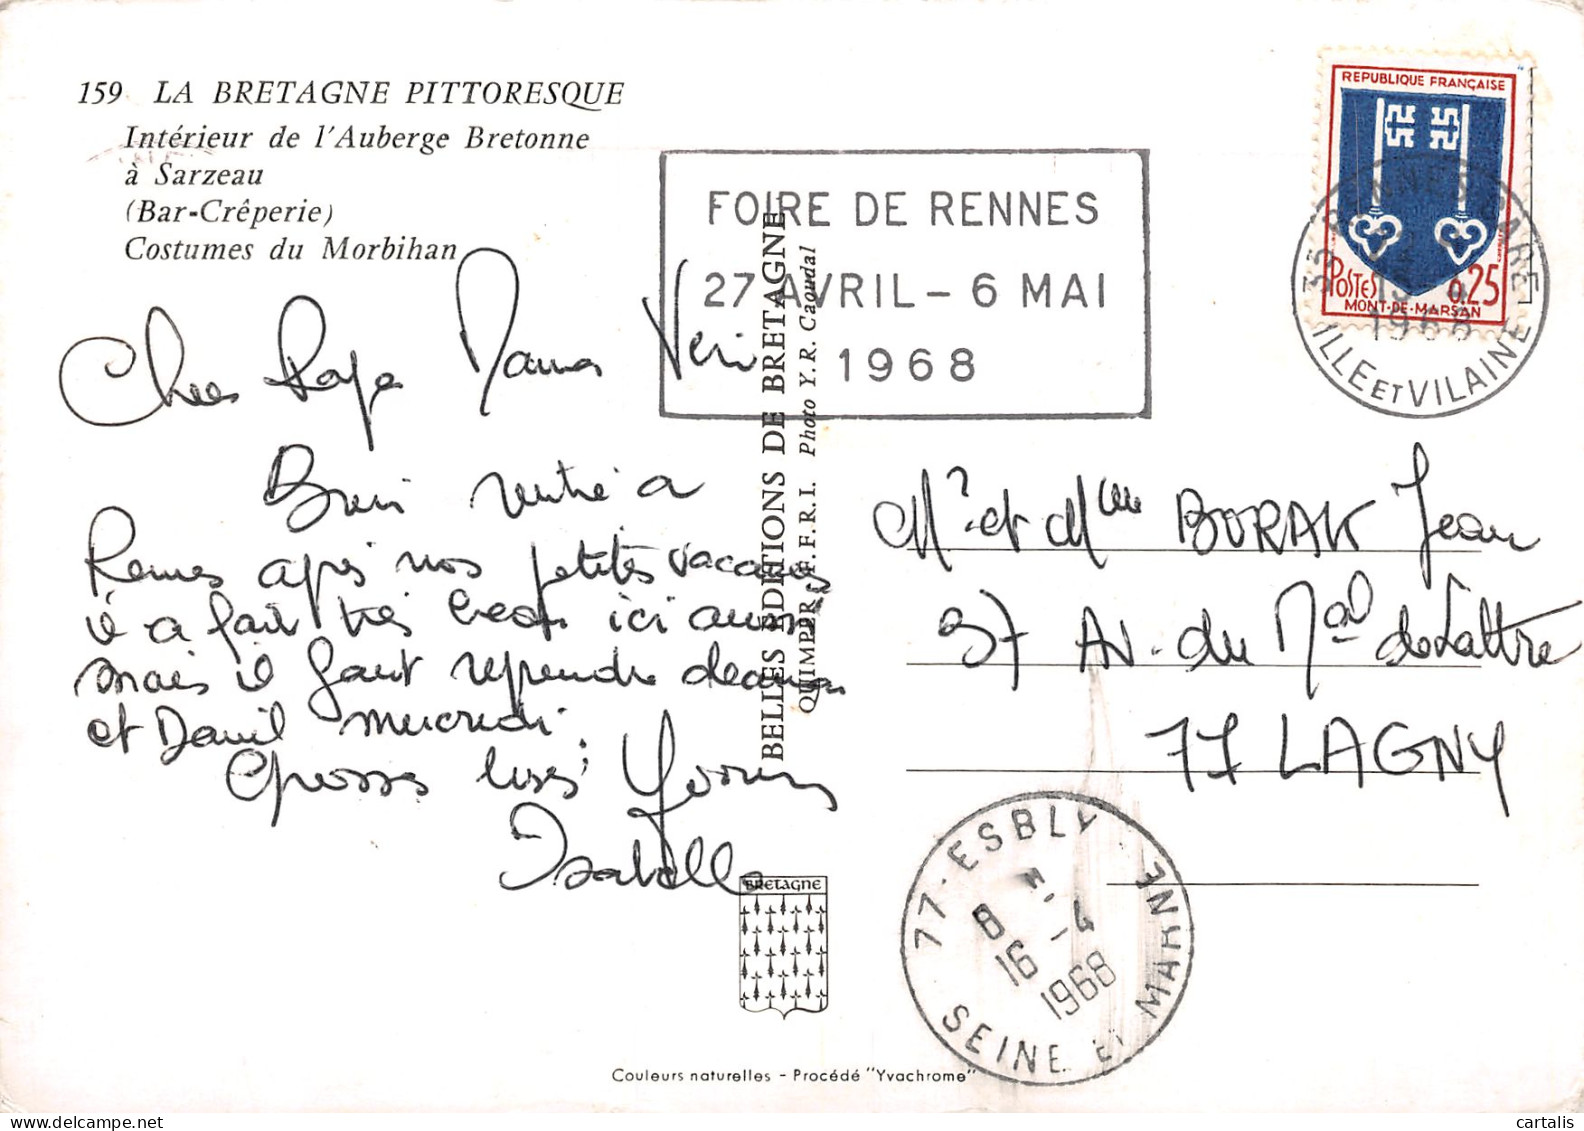 159 LA BRETAGNE PITTORESQUE
Intérieur de l'Auberge Bretonne
à Sarzeau
(Bar-Crêperie)
Costumes du Morbihan
FOIRE DE RENNES
27 AVRIL - 6 MAI
1968
REPUBLIQUE FRANÇAISE
POSTES 0,25
MONT-DE-MARSAN
35 RENNES GARE
1968
ILLE ET VILAINE
Chers Papa Mama
Bien rentré à
Rennes après nos petites vacances
il a fait très beau ici aussi
mais il faut reprendre demain
et Daniel mercredi.
Grosses bises
Isabelle
BELLES EDITIONS DE BRETAGNE
QUIMPER, E.F.R.I. Photo Y.R. Caoudal
Mr et Mme BORAK Jean
37 Av. du Mal de Lattre
77 LAGNY
77-ESBLY
8 H
16 -4
1968
SEINE ET MARNE
BRETAGNE
Couleurs naturelles - Procédé "Yvachrome"
cartalis